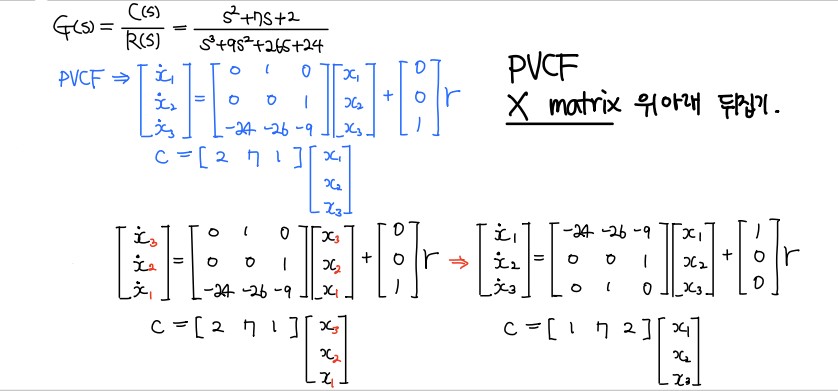 G(s) = C(s)/R(s) = (s²+7s+2)/(s³+9s²+26s+24)
PVCF ⇒ [ẋ₁ ẋ₂ ẋ₃] = [0 1 0; 0 0 1; -24 -26 -9][x₁ x₂ x₃] + [0 0 1] r
C = [2 7 1][x₁ x₂ x₃]
PVCF
X matrix 위아래 뒤집기.
[ẋ₃ ẋ₂ ẋ₁] = [0 1 0; 0 0 1; -24 -26 -9][x₃ x₂ x₁] + [0 0 1] r ⇒ [ẋ₁ ẋ₂ ẋ₃] = [-24 -26 -9; 0 0 1; 0 1 0][x₁ x₂ x₃] + [1 0 0] r
C = [2 7 1][x₃ x₂ x₁]
C = [1 7 2][x₁ x₂ x₃]